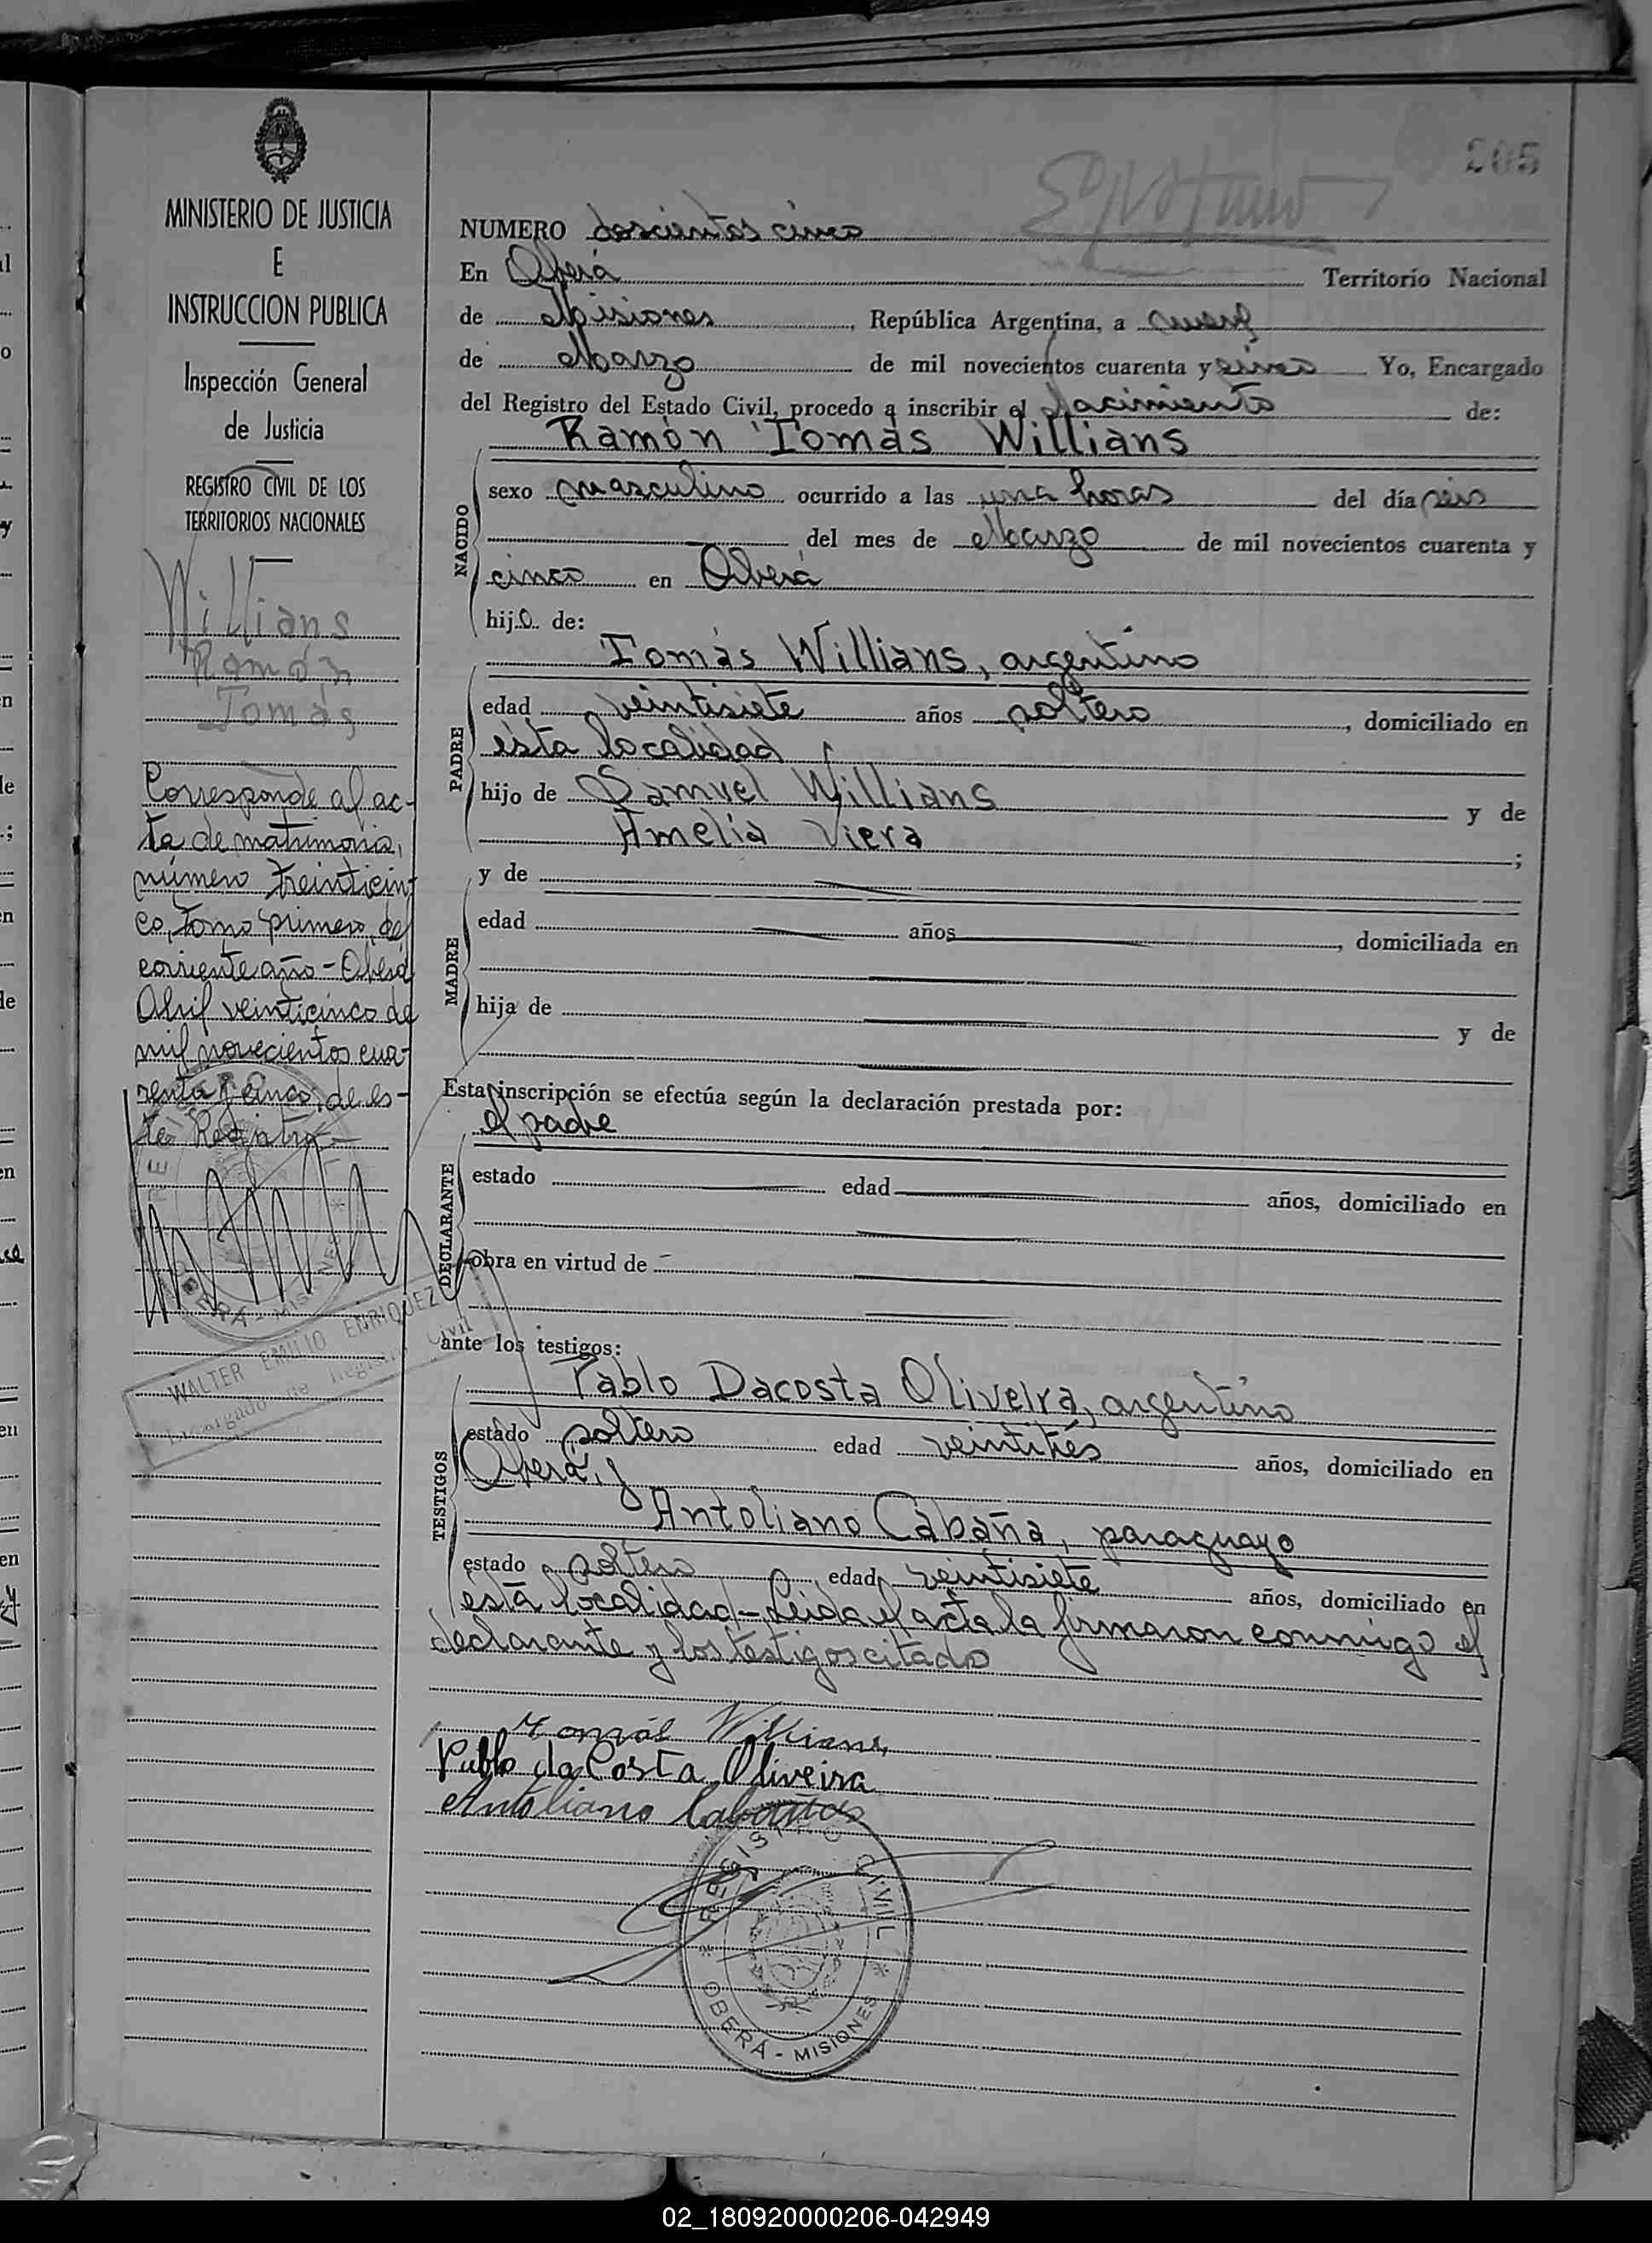 205
MINISTERIO DE JUSTICIA
E
INSTRUCCION PUBLICA
Inspección General
de Justicia
REGISTRO CIVIL DE LOS
TERRITORIOS NACIONALES
Willians
Ramón
Tomás
Corresponde al ac-
ta de matrimonio,
número treinticin-
co, tomo primero, del
corriente año - Oberá
Abril veinticinco de
mil novecientos cua-
renta y cinco, de es-
te Registro -
REGISTRO CIVIL
OBERÁ - MISIONES
WALTER EMILIO ENRIQUEZ
Encargado de Registro Civil
NUMERO doscientos cinco
En Oberá Territorio Nacional
de Misiones, República Argentina, a nueve
de Marzo de mil novecientos cuarenta y cinco Yo, Encargado
del Registro del Estado Civil, procedo a inscribir el Nacimiento de:
Ramón Tomás Willians
NACIDO
sexo masculino ocurrido a las una horas del día seis
del mes de Marzo de mil novecientos cuarenta y
cinco en Oberá
hijo de:
Tomás Willians, argentino
PADRE
edad veintisiete años soltero, domiciliado en
esta localidad
hijo de Samuel Willians y de
Amelia Viera ;
y de
MADRE
edad años, domiciliada en
hija de y de
Esta inscripción se efectúa según la declaración prestada por:
el padre
DECLARANTE
estado edad años, domiciliado en
obra en virtud de
ante los testigos:
Pablo Dacosta Oliveira, argentino
TESTIGOS
estado soltero edad veintitrés años, domiciliado en
Oberá, y
Antoliano Cabaña, paraguayo
estado soltero edad veintisiete años, domiciliado en
esta localidad - Leida el acta la firmaron conmigo el
declarante y los testigos citado
Tomás Willians,
Pablo da Costa Oliveira
Antoliano Cabañas
REGISTRO CIVIL
OBERÁ - MISIONES
02_180920000206-042949